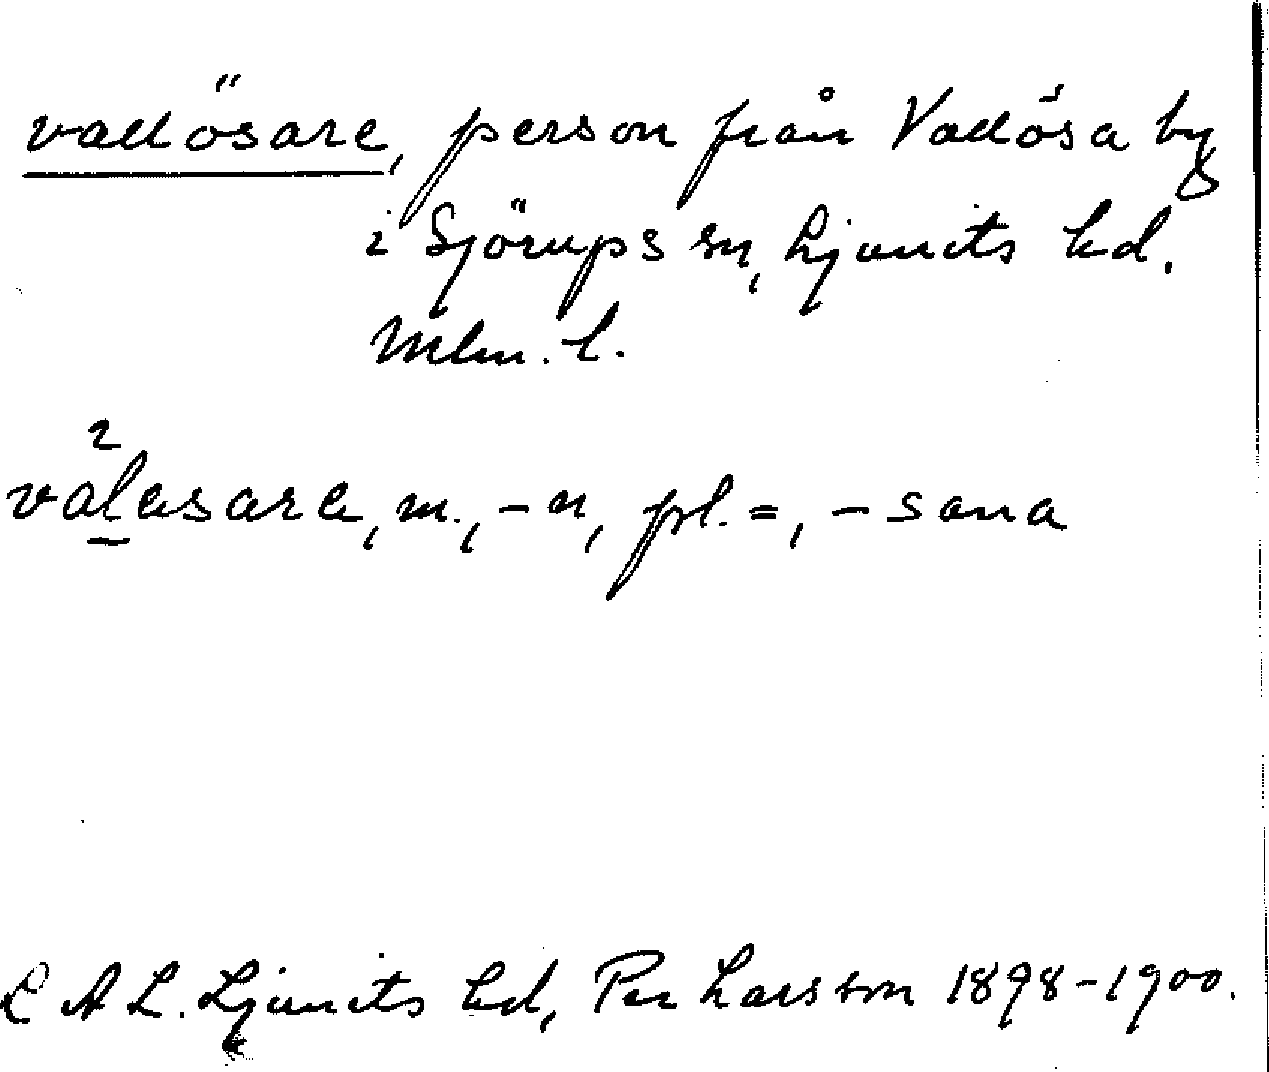 vadösare, person från Vadösa by
i Sjörups sn, Ljunits hd.
Mlm. l.
m., -n, pl. =, -sana
L A L. Ljunits hd, Per Larsson 1898-1900.